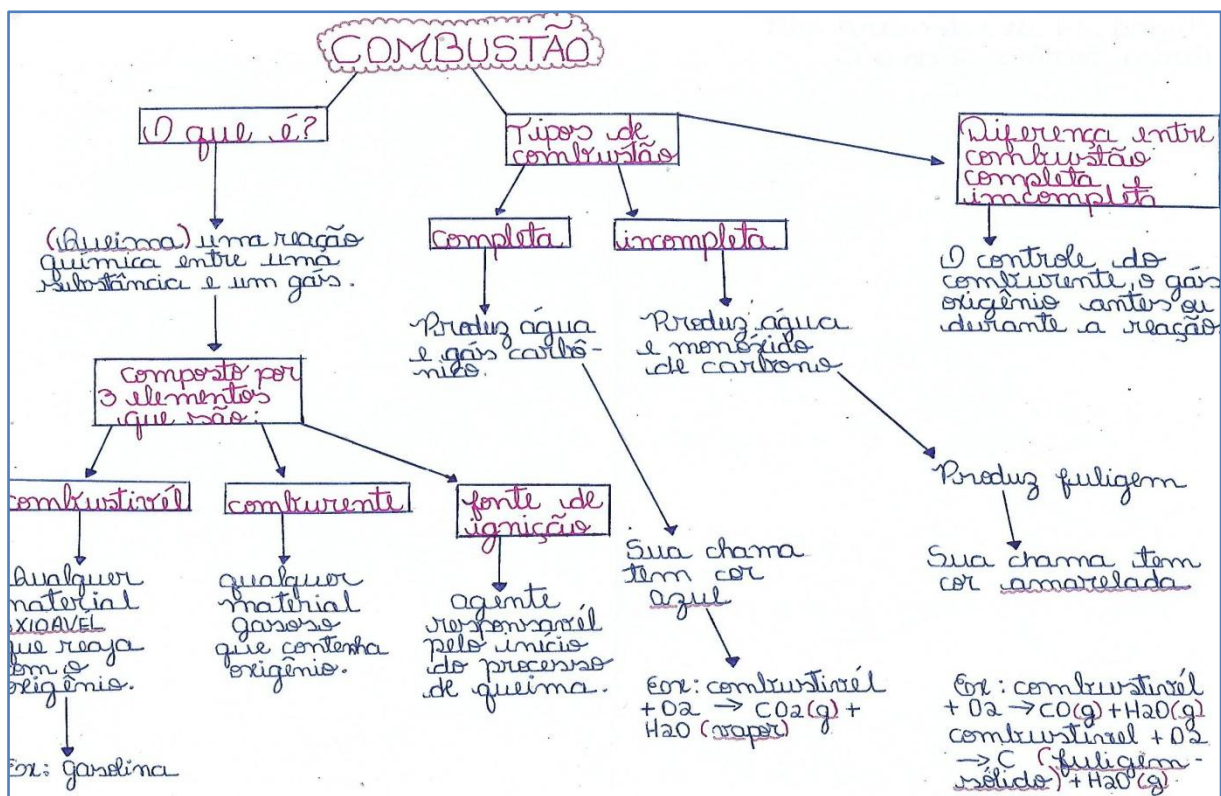 COMBUSTÃO
O que é?
(Queima) uma reação
química entre uma
substância e um gás.
composto por
3 elementos
que são:
combustivél
Qualquer
material
OXIDAVÉL
que reaja
com o
oxigênio.
Ex: gasolina
comburente
qualquer
material
gasoso
que contenha
oxigênio.
fonte de
ignição
agente
responsavél
pelo início
do processo
de queima.
Tipos de
combustão
completa
Produz água
e gás carbô-
nico.
Sua chama
tem cor
azul
Ex: combustivél
+ O2 → CO2(g) +
H2O (vapor)
incompleta
Produz água
e monóxido
de carbono
Produz fuligem
Sua chama tem
cor amarelada
Ex: combustivél
+ O2 → CO(g) + H2O(g)
combustivel + O2
→ C (fuligem-
sólido) + H2O(g).
Diferença entre
combustão
completa e
imcompleta
O controle do
comburente, o gás
oxigênio antes ou
durante a reação